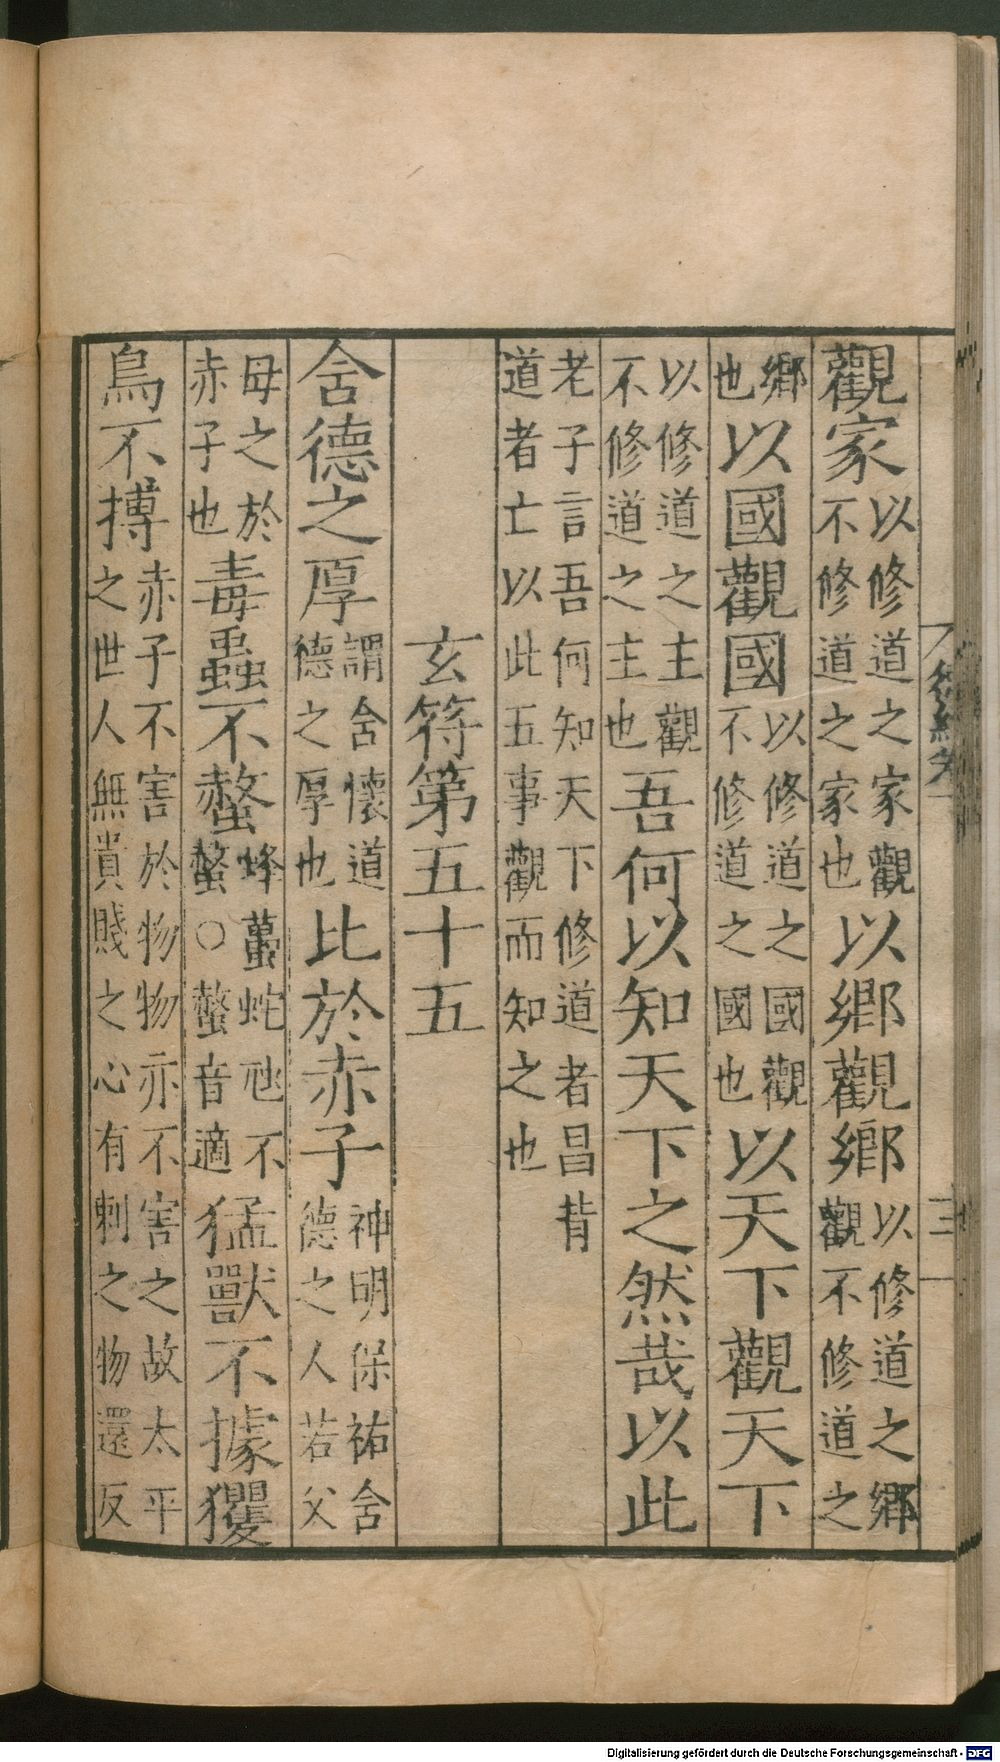 觀家以修道之家觀不修道之家也以鄉觀鄉以修道之鄉觀不修道之
鄉也以國觀國以修道之國觀不修道之國也以天下觀天下
以修道之主觀不修道之主也吾何以知天下之然哉以此
老子言吾何知天下修道者昌背道者亡以此五事觀而知之也
玄符第五十五
含德之厚謂含懷道德之厚也比於赤子神明保祐含德之人若父
母之於赤子也毒蟲不螫蜂蠆蛇虺不螫○螫音適猛獸不據玃
鳥不搏赤子不害於物物亦不害之故太平之世人無貴賤之心有刺之物還反
三
Digitalisierung gefördert durch die Deutsche Forschungsgemeinschaft - DFG